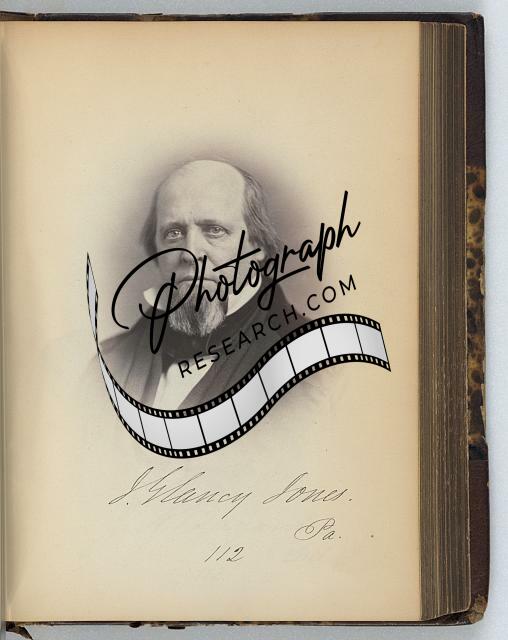 Photograph
RESEARCH.COM
J. Glancy Jones.
Pa.
112